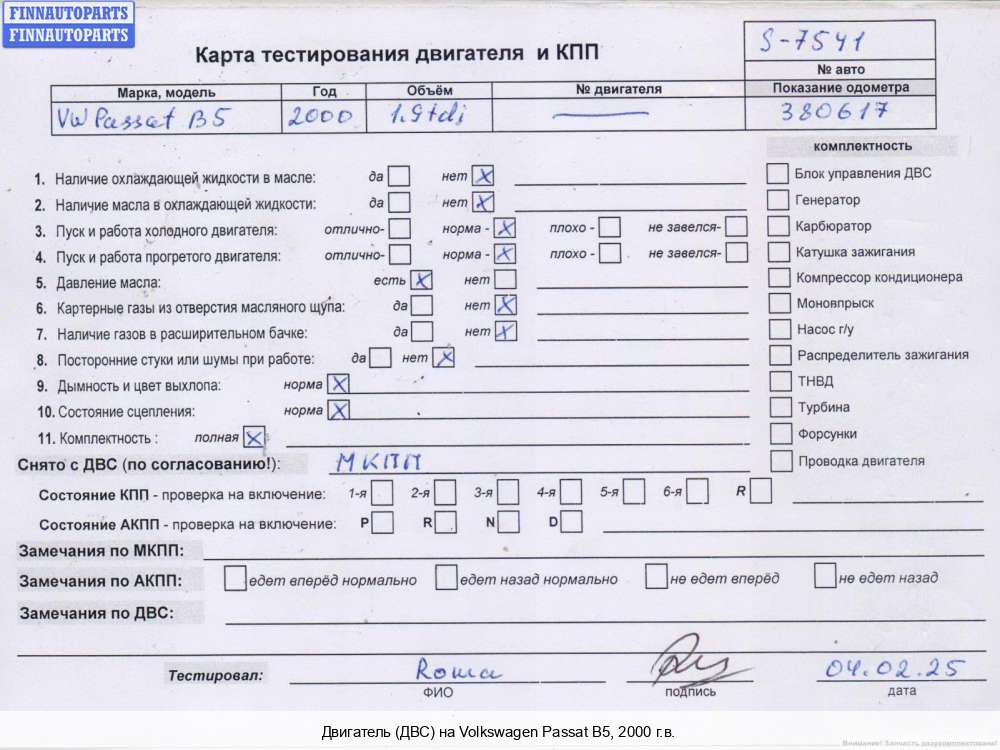 FINNAUTOPARTS
FINNAUTOPARTS
Карта тестирования двигателя и КПП
S-7541
№ авто
Марка, модель Год Объём № двигателя Показание одометра
VW Passat B5 2000 1.9tdi — 380617
комплектность
1. Наличие охлаждающей жидкости в масле: да нет X Блок управления ДВС
2. Наличие масла в охлаждающей жидкости: да нет X Генератор
3. Пуск и работа холодного двигателя: отлично- норма - X плохо - не завелся- Карбюратор
4. Пуск и работа прогретого двигателя: отлично- норма - X плохо - не завелся- Катушка зажигания
5. Давление масла: есть X нет Компрессор кондиционера
6. Картерные газы из отверстия масляного щупа: да нет X Моновпрыск
7. Наличие газов в расширительном бачке: да нет X Насос г/у
8. Посторонние стуки или шумы при работе: да нет X Распределитель зажигания
9. Дымность и цвет выхлопа: норма X ТНВД
10. Состояние сцепления: норма X Турбина
11. Комплектность : полная X Форсунки
Снято с ДВС (по согласованию!): МКПП Проводка двигателя
Состояние КПП - проверка на включение: 1-я 2-я 3-я 4-я 5-я 6-я R
Состояние АКПП - проверка на включение: P R N D
Замечания по МКПП:
Замечания по АКПП: едет вперёд нормально едет назад нормально не едет вперёд не едет назад
Замечания по ДВС:
Тестировал: Roma 04.02.25
ФИО подпись дата
Двигатель (ДВС) на Volkswagen Passat B5, 2000 г.в.
Внимание! Запчасть разукомплектована!